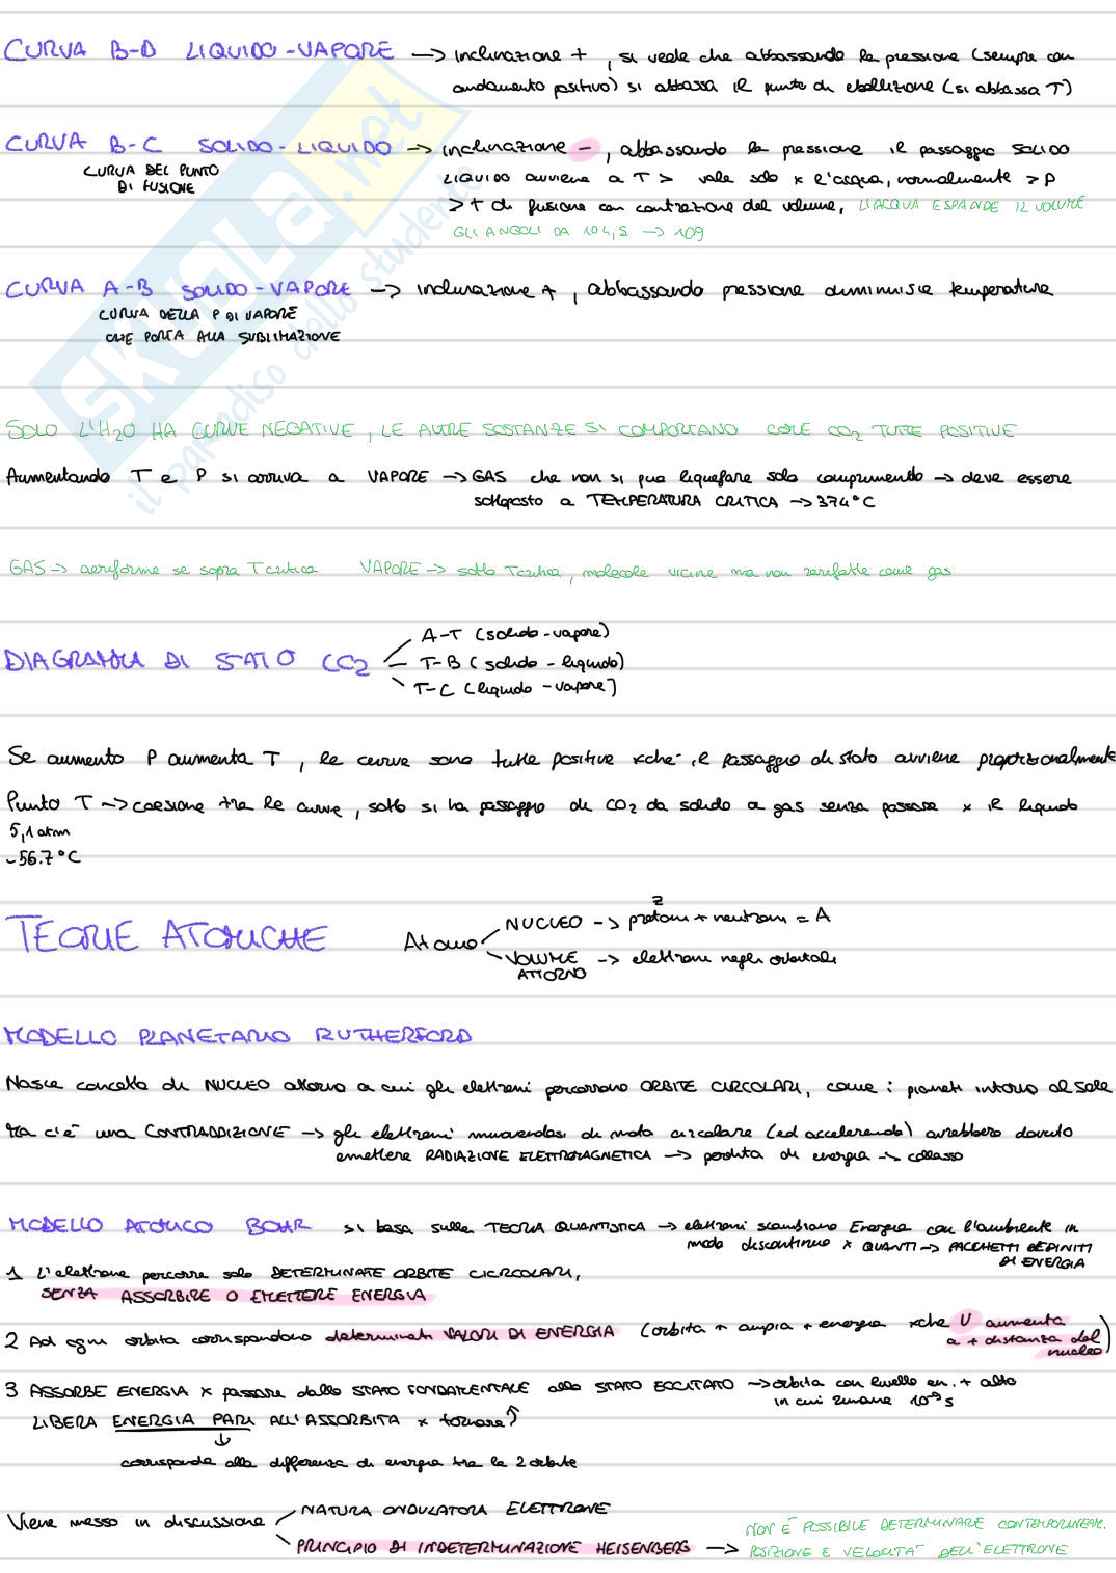 CURVA B-D LIQUIDO-VAPORE → inclinazione +, si vede che abbassando la pressione (sempre con
andamento positivo) si abbassa il punto di ebollizione (si abbassa T)
CURVA B-C SOLIDO-LIQUIDO → inclinazione -, abbassando la pressione il passaggio SOLIDO
CURVA DEL PUNTO
DI FUSIONE
LIQUIDO avviene a T > vale solo x l'acqua, normalmente > P
> T di fusione con contrazione del volume, L'ACQUA ESPANDE IL VOLUME
GLI ANGOLI DA 104,5 → 109
CURVA A-B SOLIDO-VAPORE → inclinazione +, abbassando pressione diminuisce temperatura
CURVA DELLA P DI VAPORE
CHE PORTA ALLA SUBLIMAZIONE
SOLO L'H2O HA CURVE NEGATIVE, LE ALTRE SOSTANZE SI COMPORTANO COME CO2 TUTTE POSITIVE
Aumentando T e P si arriva a VAPORE → GAS che non si può liquefare solo comprimendo → deve essere
sottoposto a TEMPERATURA CRITICA → 374°C
GAS → aeriforme se sopra T critica VAPORE → sotto T critica, molecole vicine ma non rarefatte come gas
DIAGRAMMA DI STATO CO2
A-T (solido-vapore)
T-B (solido-liquido)
T-C (liquido-vapore)
Se aumento P aumenta T, le curve sono tutte positive xche' il passaggio di stato avviene proporzionalmente
Punto T → coesione tra le curve, sotto si ha passaggio di CO2 da solido a gas senza passare x il liquido
5,1 atm
-56.7°C
TEORIE ATOMICHE
Atomo
NUCLEO → protoni + neutroni = A
Z
VOLUME ATTORNO → elettroni negli orbitali
MODELLO PLANETARIO RUTHERFORD
Nasce concetto di NUCLEO attorno a cui gli elettroni percorrono ORBITE CIRCOLARI, come i pianeti intorno al sole
Ma c'è una CONTRADDIZIONE → gli elettroni muovendosi di moto circolare (ed accelerando) avrebbero dovuto
emettere RADIAZIONE ELETTROMAGNETICA → perdita di energia → collasso
MODELLO ATOMICO BOHR si basa sulla TEORIA QUANTISTICA → elettroni scambiano Energia con l'ambiente in
modo discontinuo x QUANTI → PACCHETTI DEFINITI
DI ENERGIA
1 L'elettrone percorre solo DETERMINATE ORBITE CICRCOLARI,
SENZA ASSORBIRE O EMETTERE ENERGIA
2 Ad ogni orbita corrispondono determinati VALORI DI ENERGIA (orbita + ampia + energia xche U aumenta
a + distanza dal
nucleo)
3 ASSORBE ENERGIA x passare dallo STATO FONDAMENTALE allo STATO ECCITATO → orbita con livello en. + alto
in cui rimane 10⁻⁹ s
LIBERA ENERGIA PARI ALL'ASSORBITA x tornare
corrisponde alla differenza di energia tra le 2 orbite
Viene messo in discussione
NATURA ONDULATORIA ELETTRONE
PRINCIPIO DI INDETERMINAZIONE HEISENBERG → NON È POSSIBILE DETERMINARE CONTEMPORANEAM.
POSIZIONE E VELOCITA' DELL'ELETTRONE
skuola.net
il paradiso dello studente